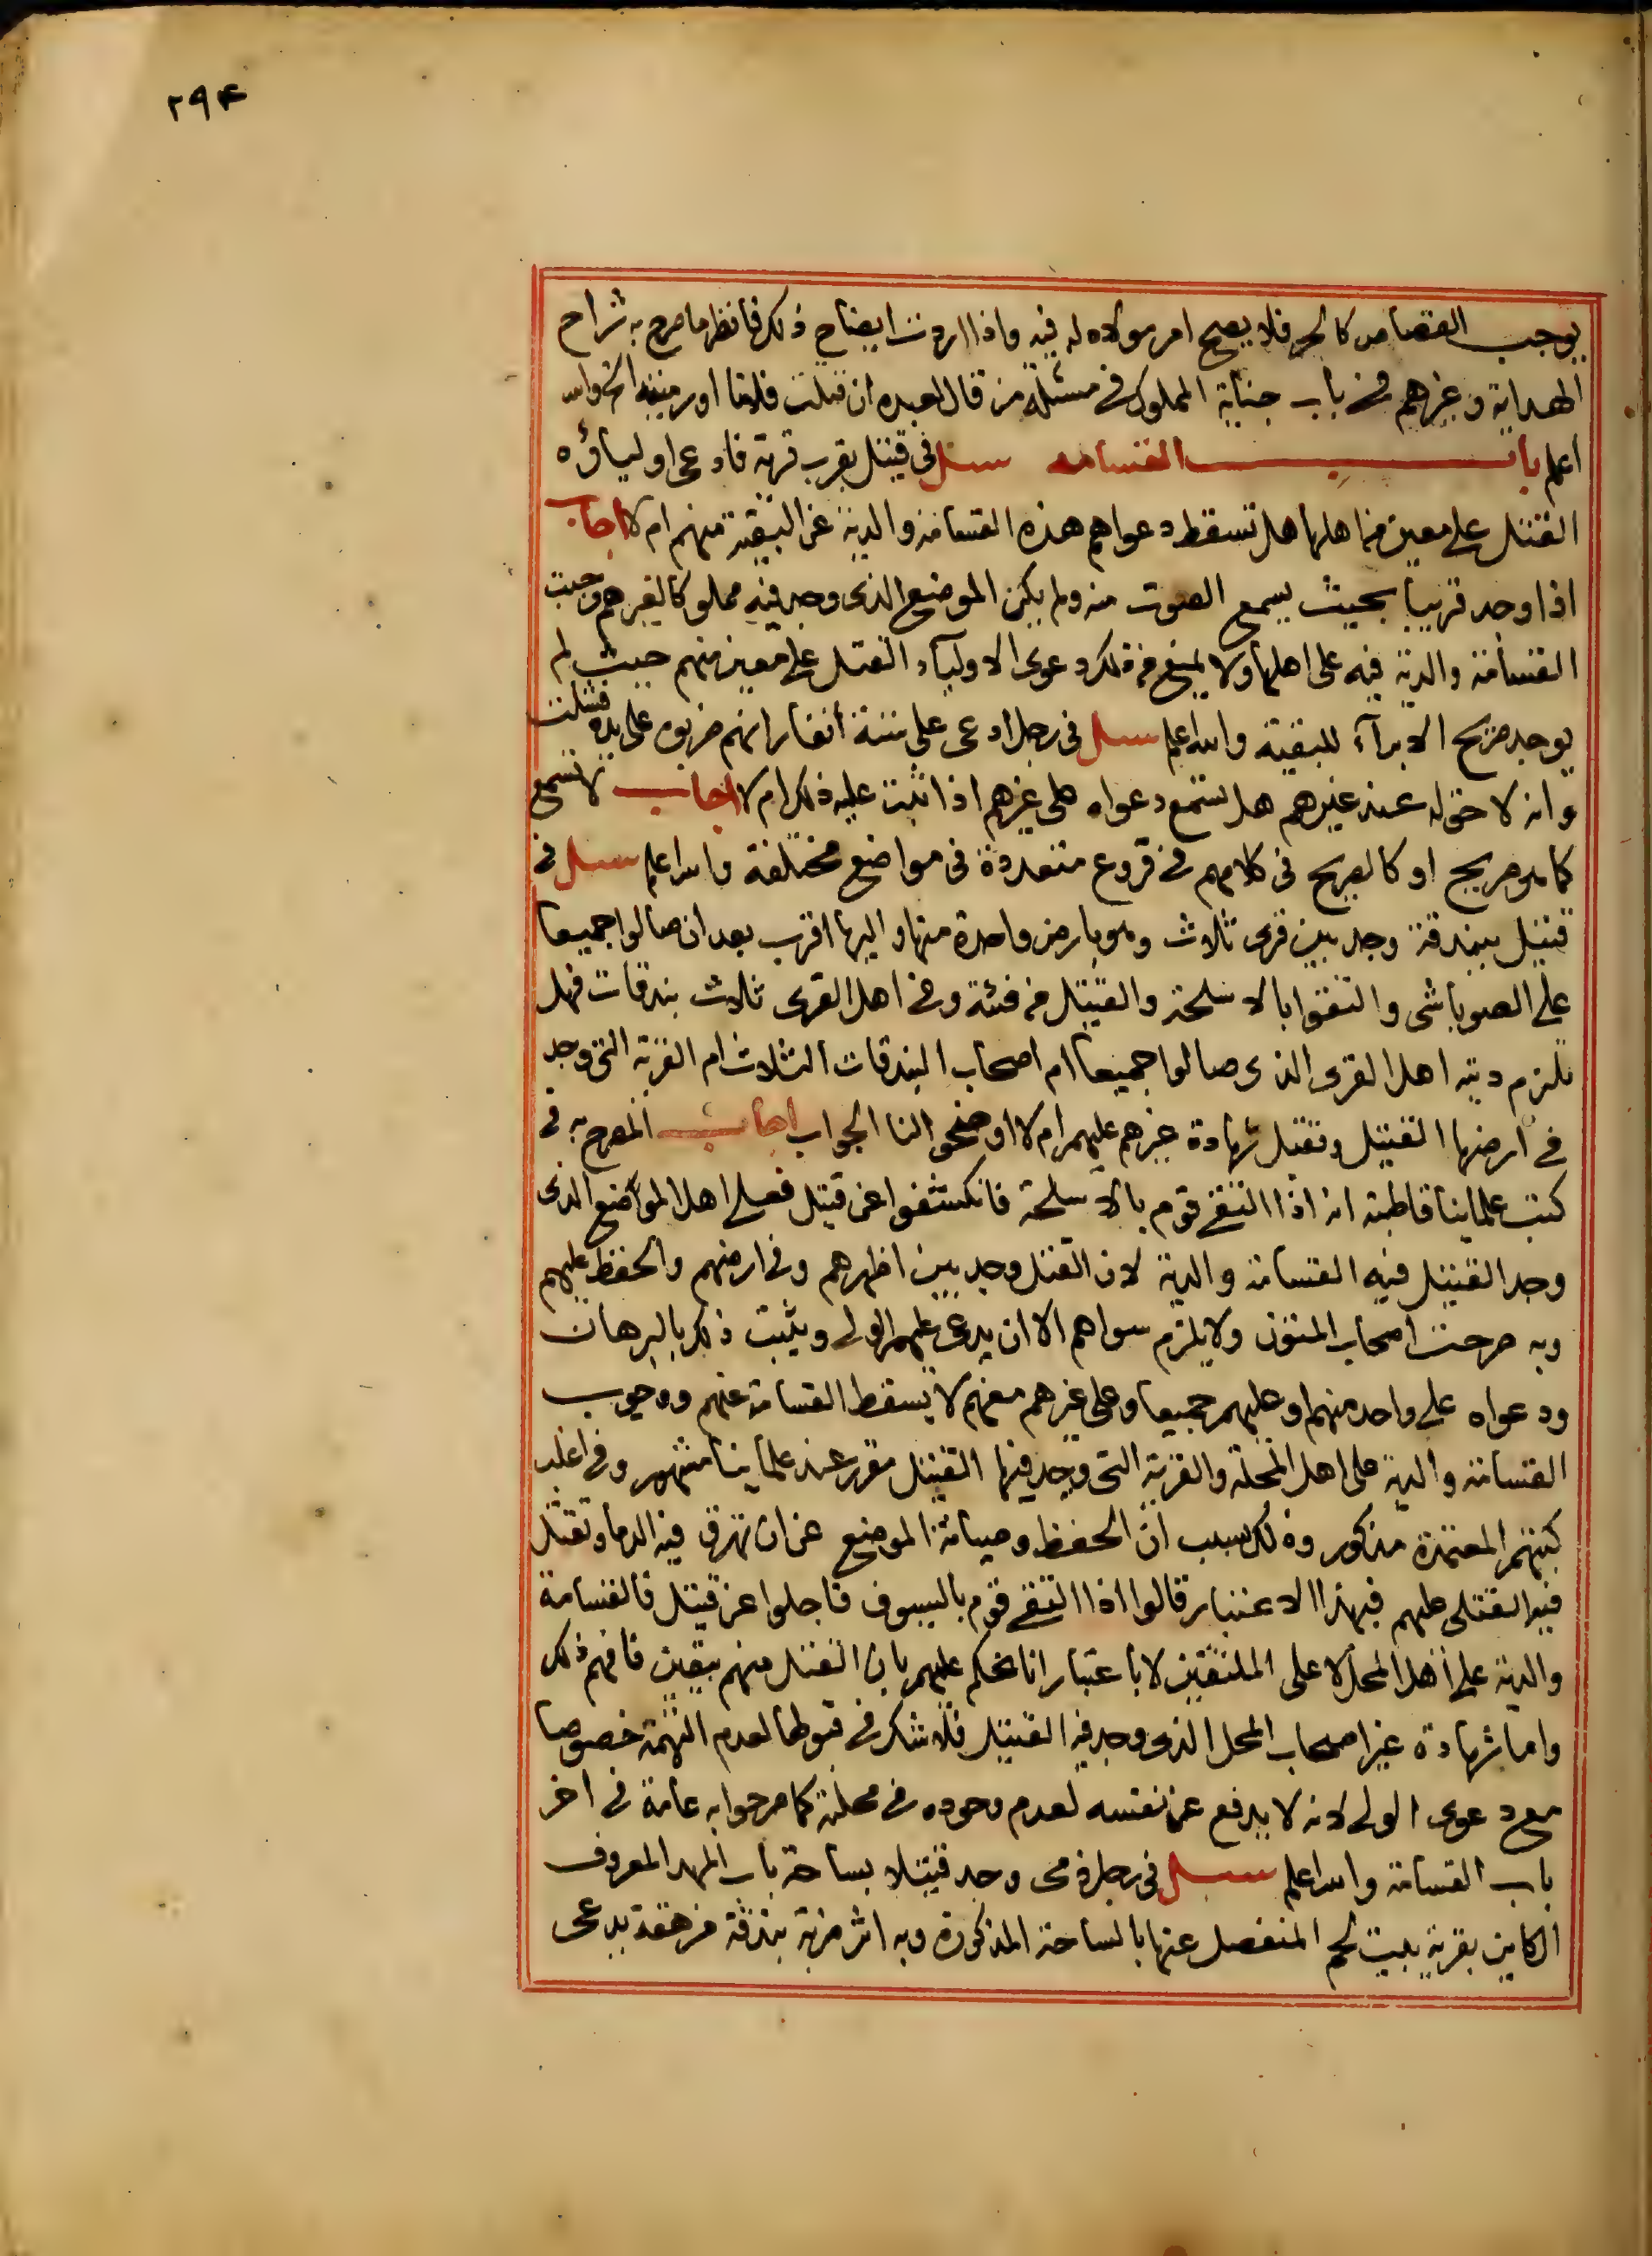 ٢٩٤
يوجب القصاص كالحر فلا يصح امر مولاه له فيه واذا اردت ايضاح ذلك فانظر ما صرح به شراح
الهداية وغيرهم في باب جناية المملوك في مسئلة من قال لعبده ان قتلت فلانا او رميته الخ والله
اعلم باب القسامه سئل في قتيل بقرب قرية فادعى اولياؤه
القتل على معين من اهلها هل تسقط دعواهم هذه القسامة والدية عن البقية منهم ام لا اجاب
اذا وجد قريبا بحيث يسمع الصوت منه ولم يكن الموضع الذي وجد فيه مملوكا لغيرهم وجبت
القسامة والدية فيه على اهلها ولا يمنع من ذلك دعوى الاولياء القتل على معين منهم حيث لم
يوجد صريح الابراء للبقية والله اعلم سئل في رجل ادعى على ستة انفار انهم ضربوه على يده فشلت
وانه لا حق له عند غيرهم هل تسمع دعواه على غيرهم اذا ثبت عليه ذلك ام لا اجاب لا تسمع
كما هو صريح او كالصريح في كلامهم في فروع متعددة في مواضع مختلفة والله اعلم سئل في
قتيل ببندقة وجد بين قرى ثلاث وهو بارض واحدة منها واليها اقرب بعد ان صالوا جميعا
على الصوباشى والتقوا بالاسلحة والقتيل من فئة وفي اهل القرى ثلاث بندقات فهل
تلزم ديته اهل القرى الذي صالوا جميعا ام اصحاب البندقات الثلاث ام القرية التي وجد
في ارضها القتيل وتقبل شهادة غيرهم عليهم ام لا اوضحوا لنا الجواب اجاب المصرح به في
كتب علمائنا قاطبة انه اذا التقى قوم بالاسلحة فانكشفوا عن قتيل فعلى اهل المواضع الذي
وجد القتيل فيه القسامة والدية لان القتل وجد بين اظهرهم وفي ارضهم والحفظ عليهم
وبه صرحت اصحاب المتون ولا يلزم سواهم الا ان يدعى عليهم الولى ويثبت ذلك بالبرهان
ودعواه على واحد منهم او عليهم جميعا وعلى غيرهم معهم لا يسقط القسامة عنهم ووجوب
القسامة والدية على اهل المحلة والقرية التي وجد فيها القتيل مقرر عند علمائنا مشهور وفي اغلب
كتبهم المعتمدة مذكور وذلك بسبب ان الحفظ وصيانة الموضع عن ان تهرق فيه الدما وتقتل
فيه القتلى عليهم فبهذا الاعتبار قالوا اذا التقى قوم بالسيوف فاجلوا عن قتيل فالقسامة
والدية على اهل المحل لا على الملتقين لا باعتبار انا نحكم عليهم بان القتل منهم بيقين فافهم ذلك
واما شهادة غير اصحاب المحل الذي وجد فيه القتيل فلا شك في قبولها لعدم التهمة خصوصا
مع دعوى الولى لانه لا يدفع عن نفسه لعدم وجوده في محلته كما صرحوا به عامة في اخر
باب القسامة والله اعلم سئل في رجل ذمى وجد قتيلا بساحة باب المهد المعروف
الكاين بقرية بيت لحم المنفصل عنها بالساحة المذكورة وبه اثر ضربة بندقة مرهقة يدعى